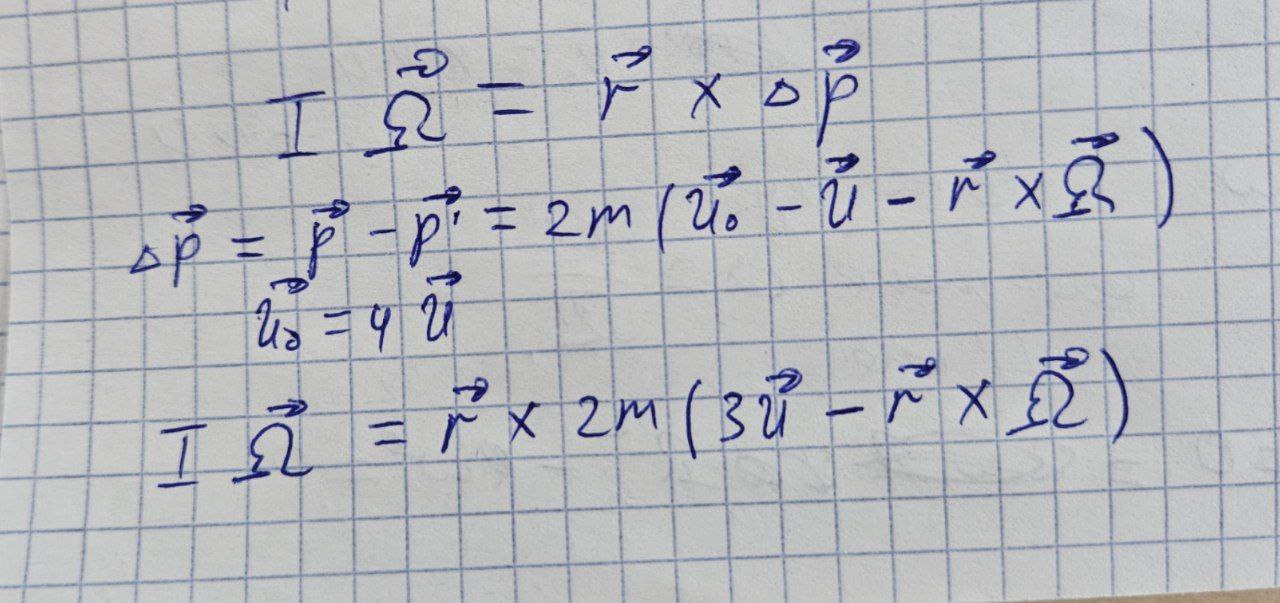 I Ω⃗ = r⃗ × Δp⃗
Δp⃗ = p⃗ − p⃗' = 2m(u⃗₀ − u⃗ − r⃗ × Ω⃗)
u⃗₀ = 4 u⃗
I Ω⃗ = r⃗ × 2m(3u⃗ − r⃗ × Ω⃗)